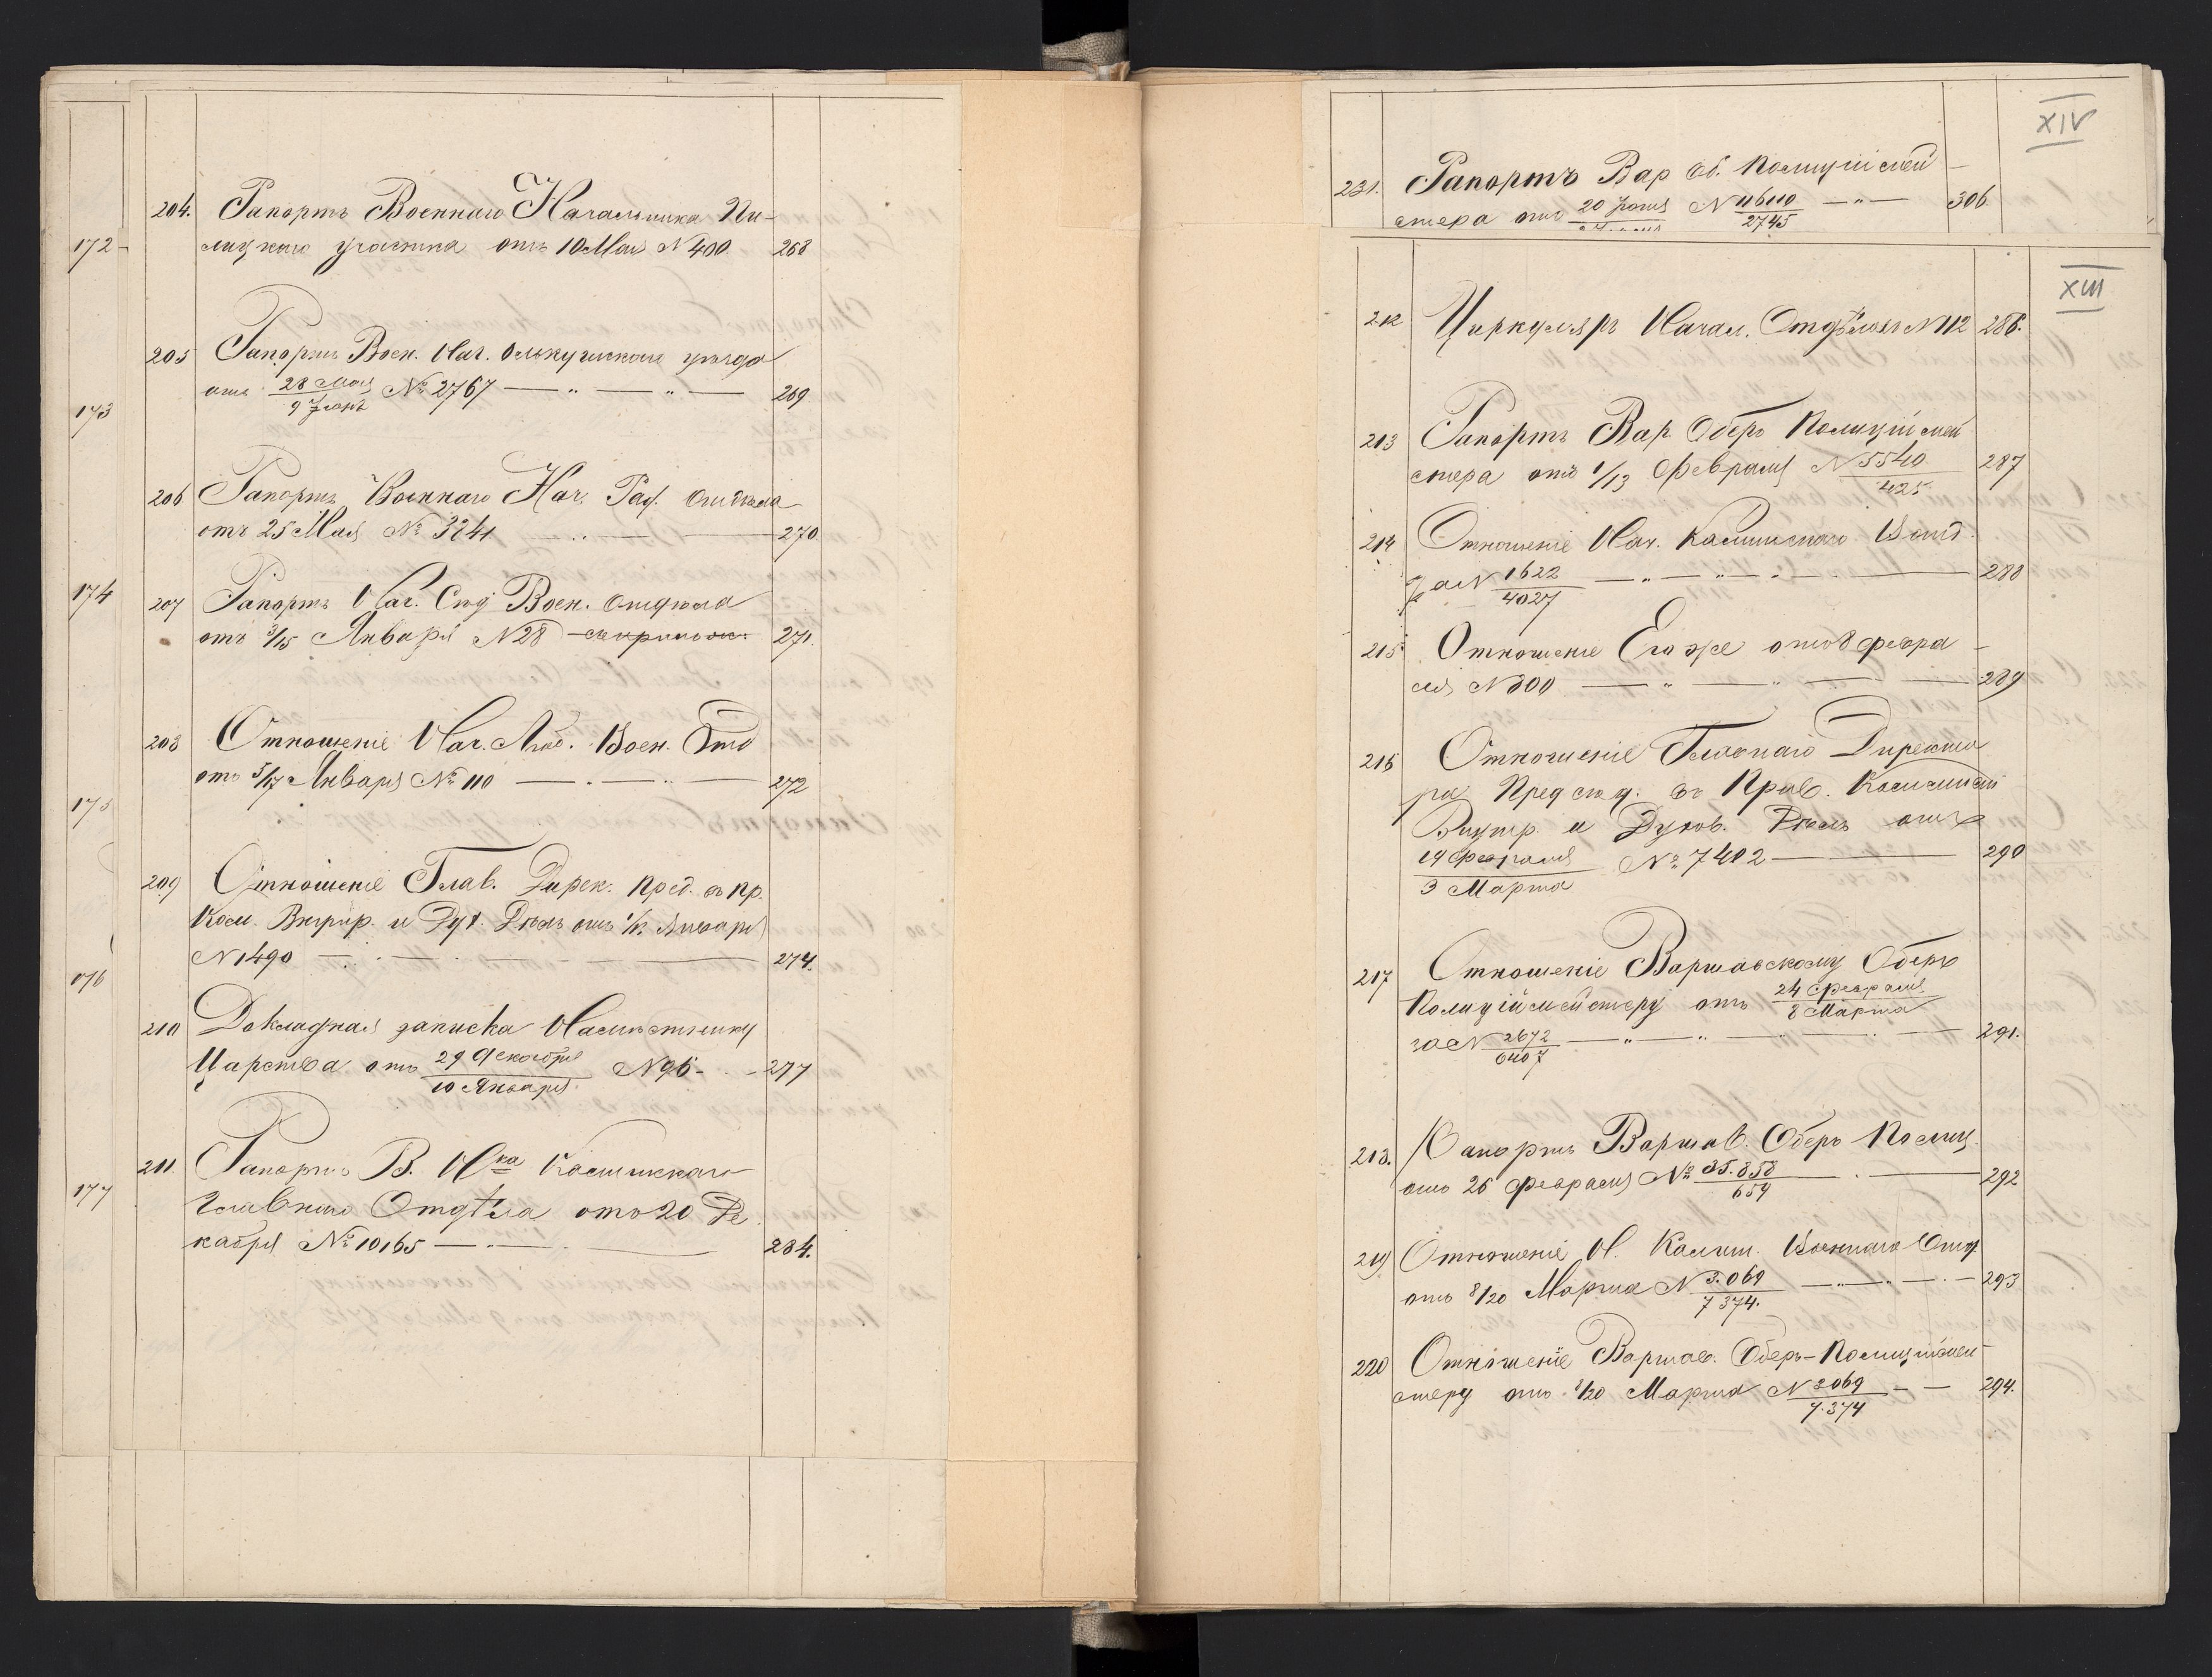 172
173
174
175
176
177
204. Рапортъ Военнаго Начальника Пи-
лицкаго участка отъ 10 Мая № 400. 268
205 Рапортъ Воен. Нач. Олькушскаго уѣзда
отъ 28 Мая / 9 Іюня № 2767 — " — " — 269
206 Рапортъ Военнаго Нач. Рад. Отдѣла
отъ 25 Мая № 3241 — " — 270
207 Рапортъ Нач. Сѣд. Воен. Отдѣла
отъ 3/15 Января № 28 271.
208 Отношеніе Нач. Люб. Воен. Отд
отъ 5/17 Января № 110 — " — " — 272
209 Отношеніе Глав. Дирек. Пред. въ Пр.
Ком. Внутр. и Дух. Дѣлъ отъ 1/13 Января
№ 1490 — 274.
210 Докладная записка Намѣстнику
Царства отъ 29 Декабря / 10 Января № 96 - - 277
211. Рапортъ В. Нка Калишскаго
Главнаго Отдѣла отъ 20 Де
кабря № 10165 — " — 284.
XIV
231. Рапортъ Вар Об. Полиціймей-
стера отъ 20 Іюня № 116110 / 2745 — " — 306
XIII
212 Циркуляръ Начал. Отдѣловъ № 112 286.
213 Рапортъ Вар. Оберъ Полиціймей
стера отъ 1/13 Февраля № 5540 / 425 287
214 Отношеніе Нач. Калишскаго Воен
За № 1622 / 4027 — " — " — 288
215 Отношеніе Его же отъ 8 февра-
ля № 800 — " — " — 289
216 Отношеніе Главнаго Директо
ра Предсѣд. въ Прав. Коммисіи
Внутр. и Духов. Дѣлъ отъ
19 Февраля / 3 Марта № 7402 — 290
217 Отношеніе Варшавскому Оберъ
Полиціймейстеру отъ 24 Февраля / 8 Марта
за № 2672 / 6407 — " — " — 291.
218. Рапортъ Варшав. Оберъ Полиц.
отъ 26 Февраля № 35.858 / 659 — 292
219 Отношеніе Н. Калиш. Военнаго Отд.
отъ 8/20 Марта № 3.069 / 7374. — " — " — 293
220 Отношеніе Варшав. Оберъ-Полиціймей-
стеру отъ 8/20 Марта № 3069 / 7.374 — — 294.